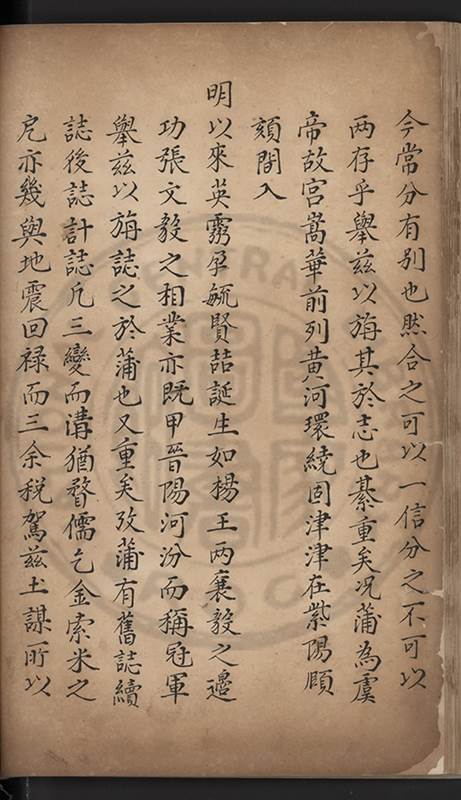 今常分有别也然合之可以一信分之不可以
两存乎舉兹以旃其於志也綦重矣况蒲為虞
帝故宫嵩華前列黄河環繞固津津在紫陽頤
頦間入
明以來英霛孕毓賢喆誕生如楊王两襄毅之邉
功張文毅之相業亦既甲晉陽河汾而稱冠軍
舉兹以旃誌之於蒲也又重矣攷蒲有舊誌續
誌後誌計誌凡三變而溝猶瞀儒乞金索米之
戹亦幾與地震回禄而三余税駕兹土謀所以